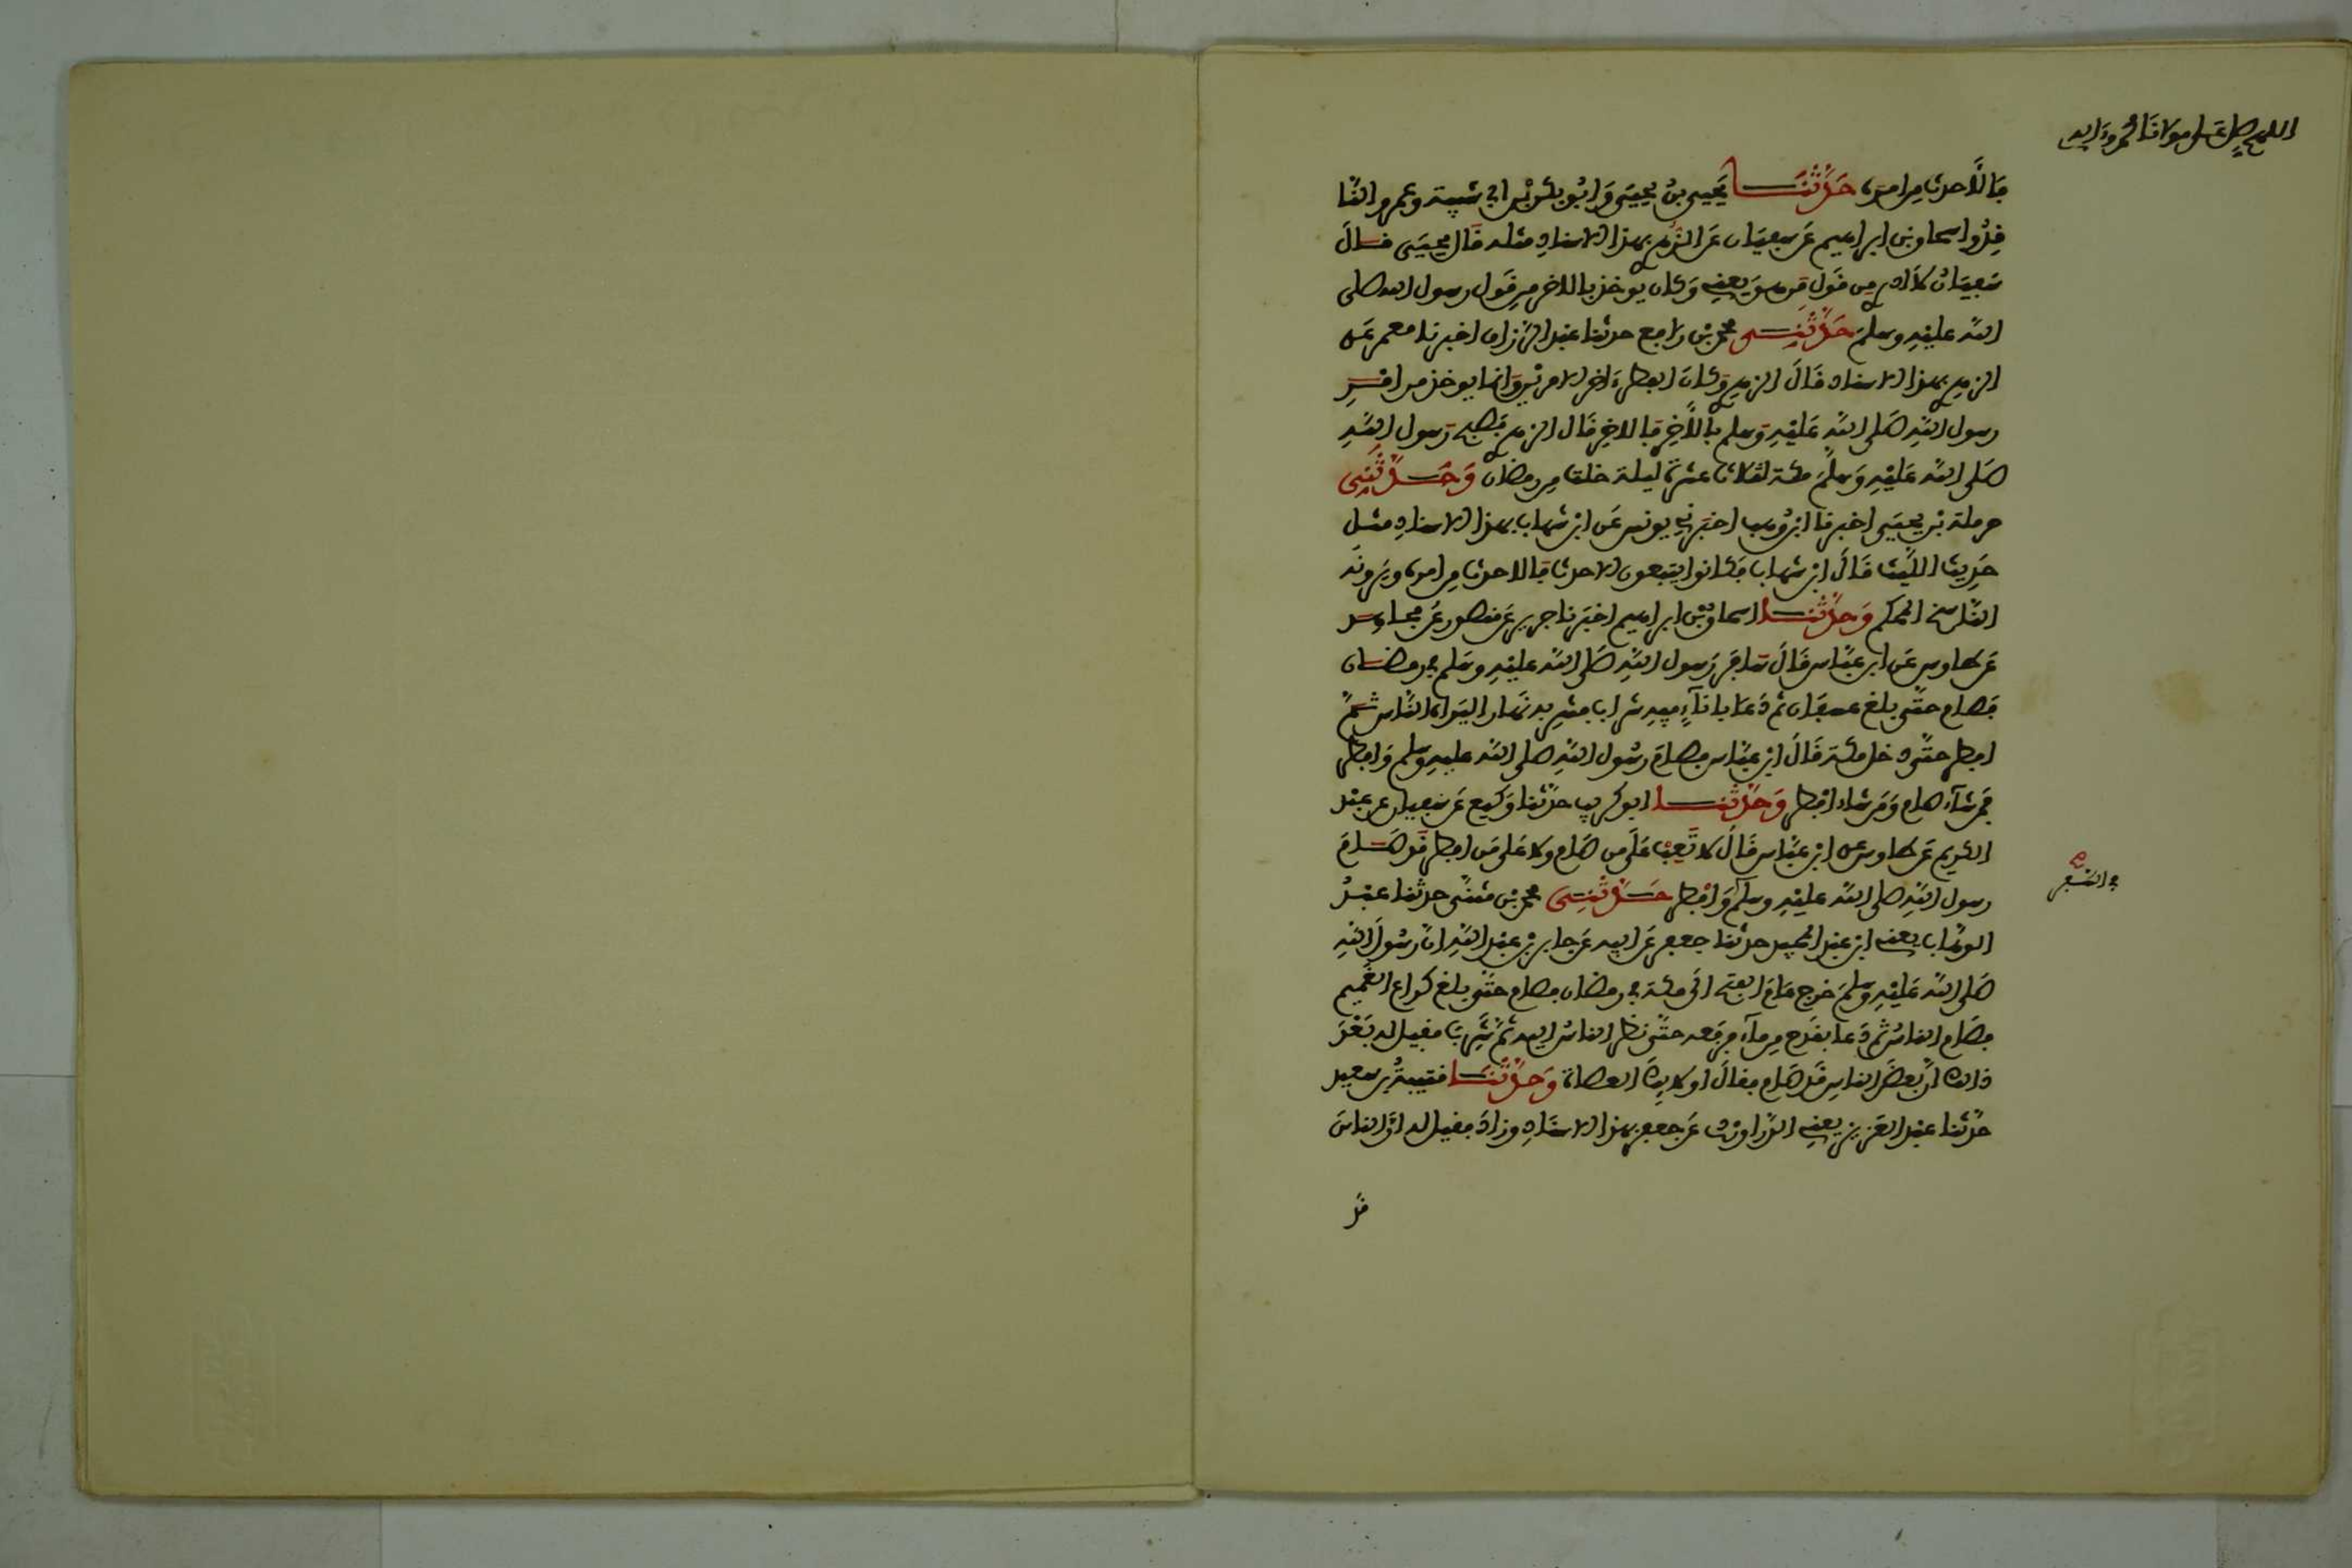 اللهم صل على مولانا محمد وءاله
فالأحدث من امره حَدَّثَنَا يحيى بن يحيى وابو بكر بن ابي شيبة وعمرو النا
قد واسحاق بن ابراهيم عن سفيان عن الزهري بهذا الاسناد مثله قال يحيى قال
سفيان لا ادري من قول من هو يعني وكان يوخذ بالاخر من قول رسول الله صلى
الله عليه وسلم حَدَّثَنِي محمد بن رافع حدثنا عبد الرزاق اخبرنا معمر عن
الزهري بهذا الاسناد قال الزهري وكان الفطر ءاخر الامرين وانما يوخذ من امر
رسول الله صلى الله عليه وسلم بالأخر فالاخر قال الزهري فصبح رسول الله
صلى الله عليه وسلم مكة لثلاث عشرة ليلة خلت من رمضان وَحَدَّثَنِي
حرملة بن يحيى اخبرنا ابن وهب اخبرني يونس عن ابن شهاب بهذا الاسناد مثل
حديث الليث قال ابن شهاب فكانوا يتبعون الاحدث فالاحدث من امره ويرونه
الناسخ المحكم وَحَدَّثَنَا اسحاق بن ابراهيم اخبرنا جرير عن منصور عن مجاهد
عن طاوس عن ابن عباس قال سافر رسول الله صلى الله عليه وسلم في رمضان
فصام حتى بلغ عسفان ثم دعا باناء فيه شراب فشربه نهارا ليراه الناس ثم
افطر حتى دخل مكة قال ابن عباس فصام رسول الله صلى الله عليه وسلم وافطر
فمن شاء صام ومن شاء افطر وَحَدَّثَنَا ابو كريب حدثنا وكيع عن سفيان عن عبد
الكريم عن طاوس عن ابن عباس قال لا تعب على من صام ولا على من افطر قد صام
رسول الله صلى الله عليه وسلم وافطر حَدَّثَنِي محمد بن مثنى حدثنا عبد
في السفر
الوهاب يعني ابن عبد المجيد حدثنا جعفر عن ابيه عن جابر بن عبد الله ان رسول الله
صلى الله عليه وسلم خرج عام الفتح الى مكة في رمضان فصام حتى بلغ كراع الغميم
فصام الناس ثم دعا بقدح من ماء فرفعه حتى نظر الناس اليه ثم شرب فقيل له بعد
ذالك ان بعض الناس قد صام فقال اولايك العصاة وَحَدَّثَنَا قتيبة بن سعيد
حدثنا عبد العزيز يعني الدراوردي عن جعفر بهذا الاسناد وزاد فقيل له ان الناس
قد